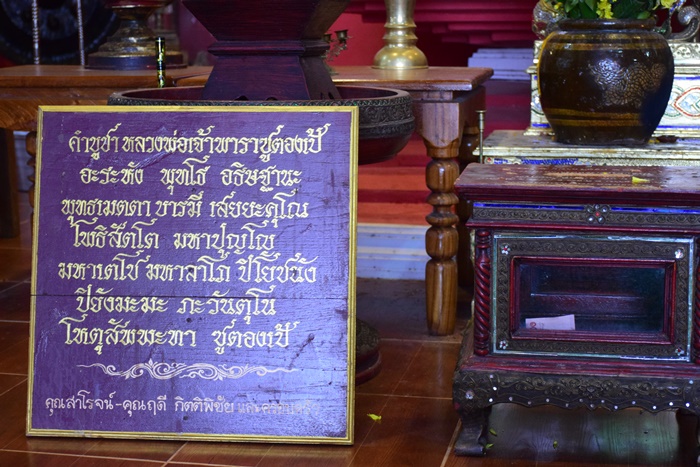 คำบูชา หลวงพ่อเจ้าพาราซูตองเป้
อะระหัง พุทโธ อธิษฐานะ
พุทธเมตตา บารมี เสยยะตุโณ
โพธิสัตโต มหาปุญโญ
มหาเตโช มหาลาโภ ปิโยชนัง
ปิยังมะมะ ภะวันตุโน
โหตุสัพพะทา ซูตองเป้
คุณสำโรจน์-คุณฤดี กิตติพิชัย และ